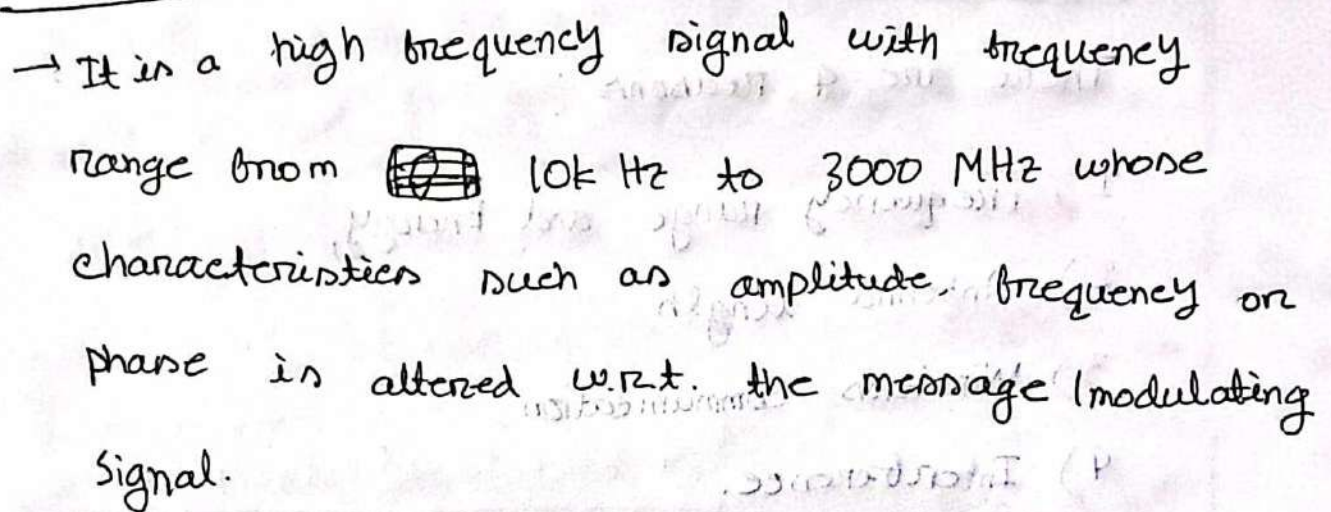 → It is a high frequency signal with frequency
range from 10k Hz to 3000 MHz whose
characteristics such as amplitude, frequency or
phase is altered w.r.t. the message /modulating
signal.